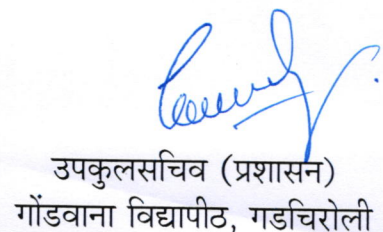 उपकुलसचिव (प्रशासन)
गोंडवाना विद्यापीठ, गडचिरोली